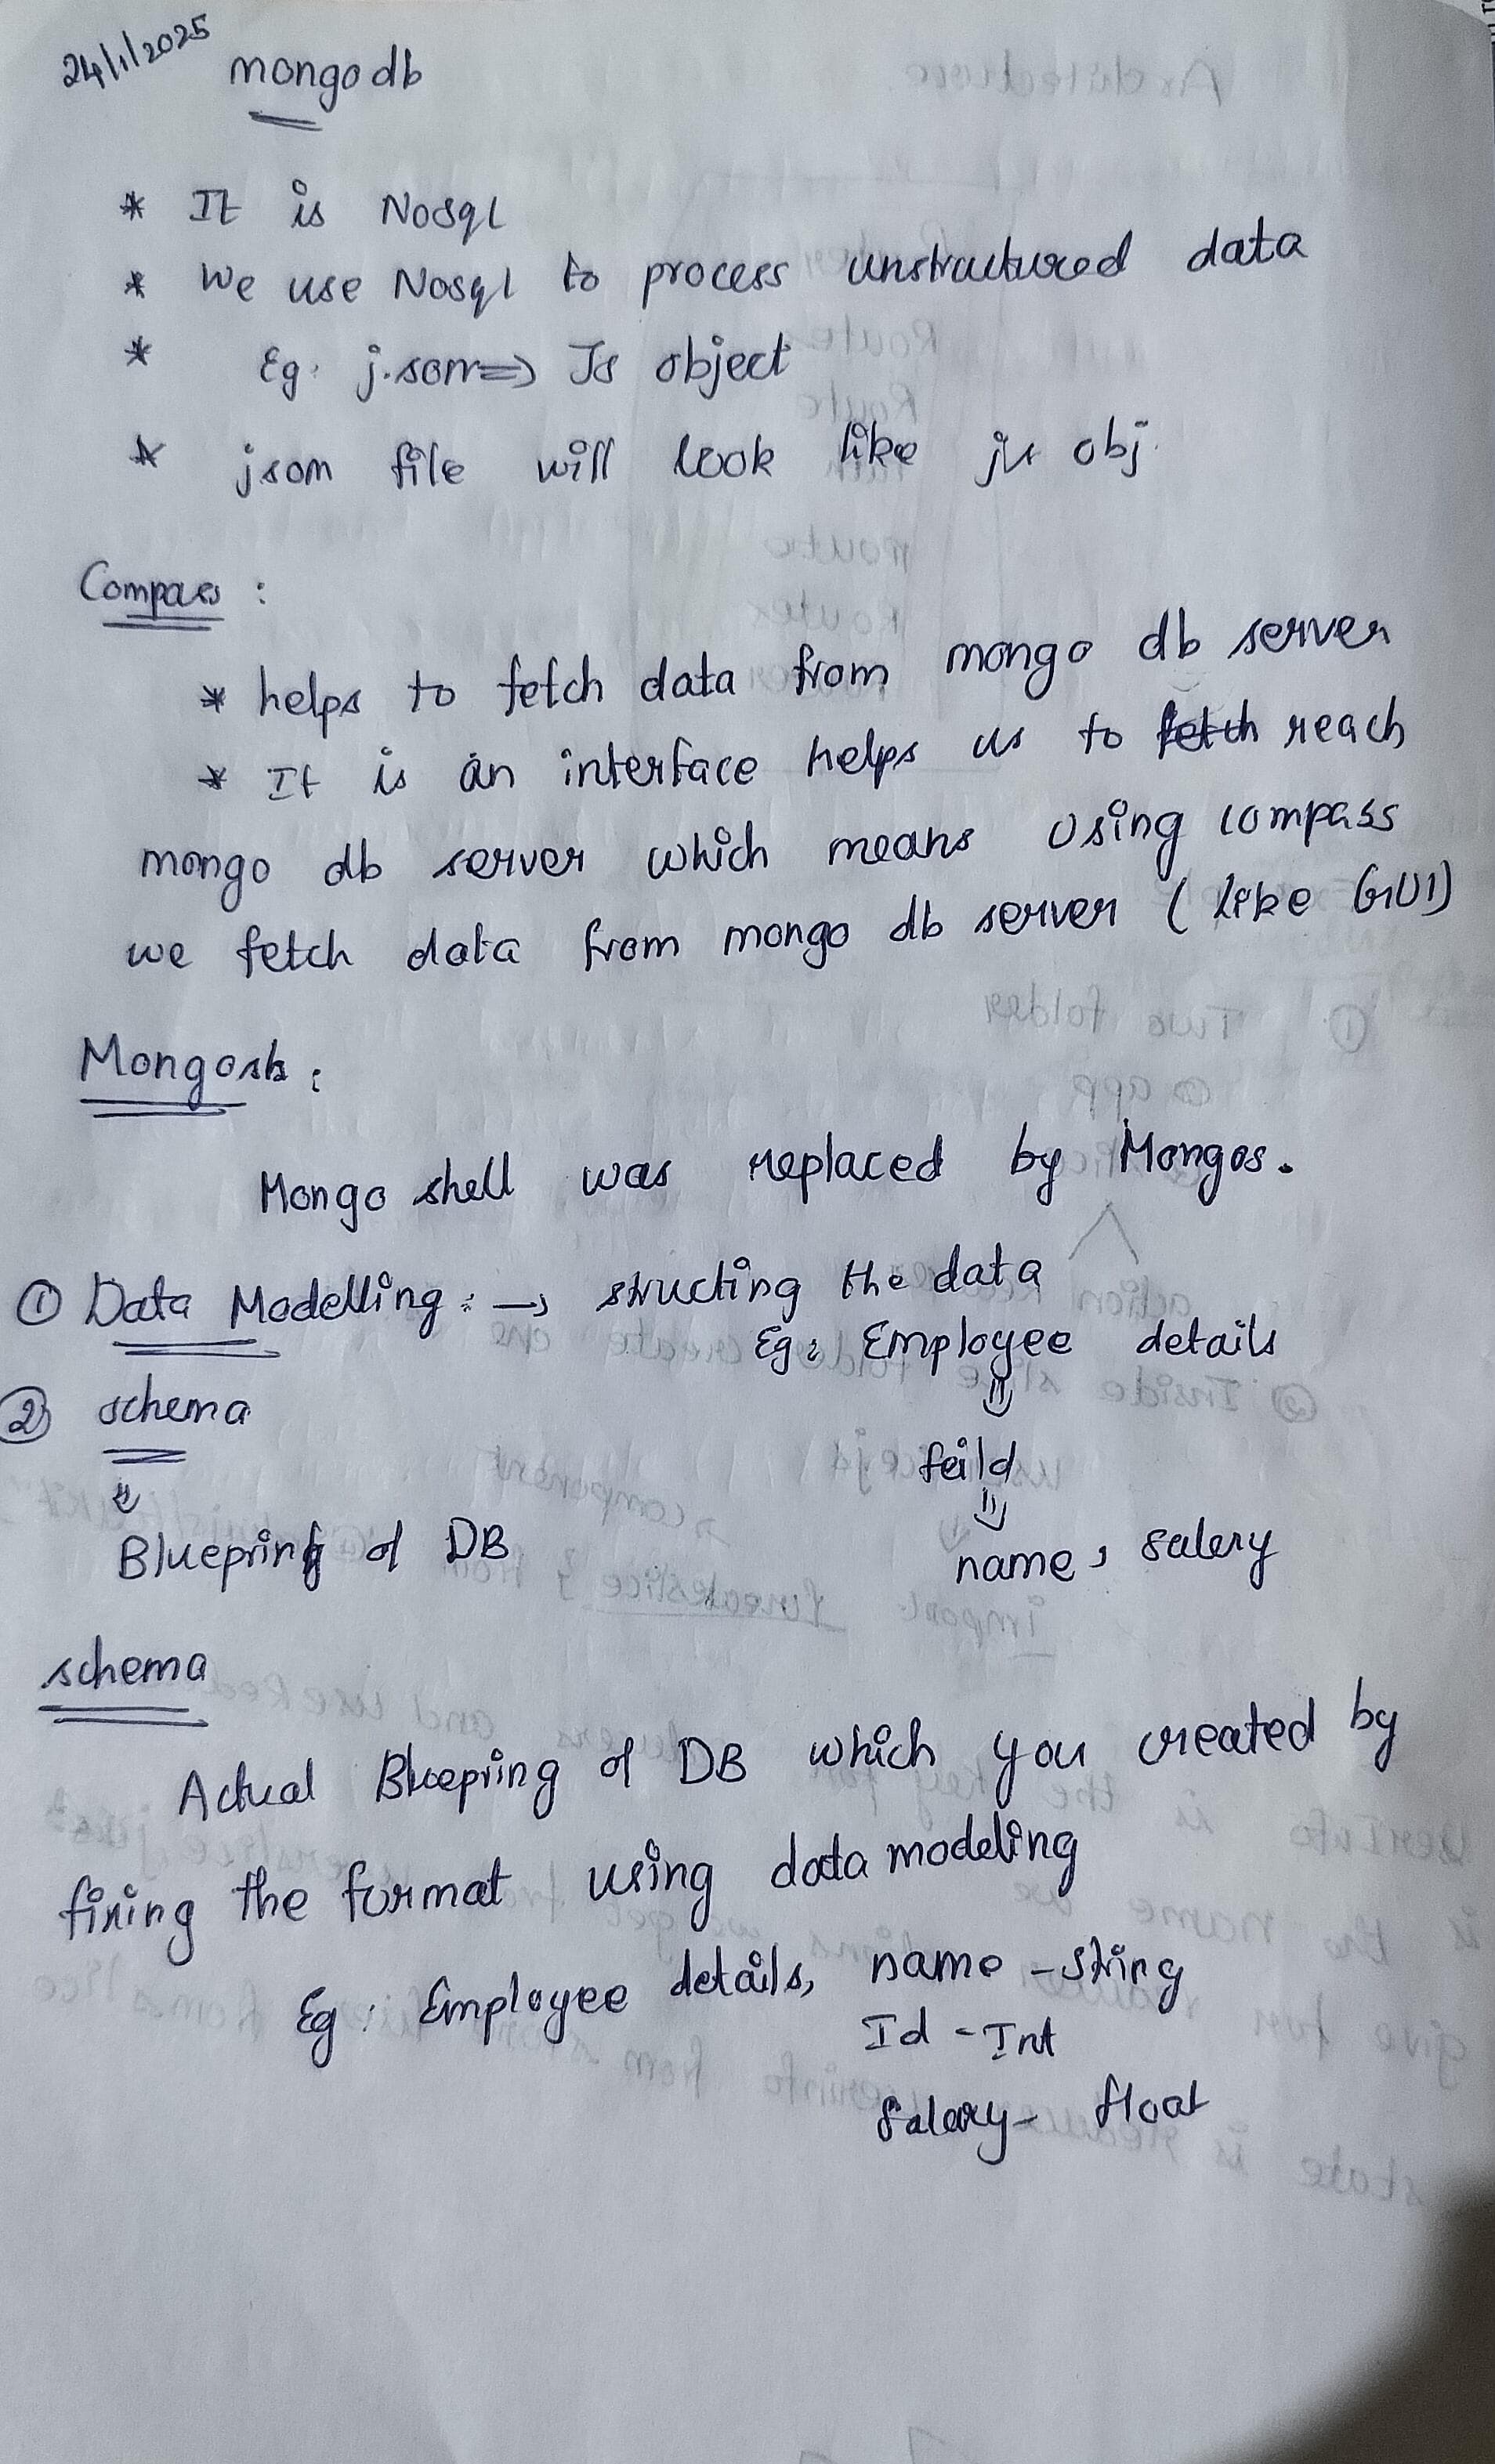 24/1/2025
mongodb
* It is Nosql
* We use Nosql to process unstructured data
* Eg: j.son => Js object
* json file will look like js obj.
Compass :
* helps to fetch data from mongo db server
* It is an interface helps us to fetch reach
mongo db server which means using compass
we fetch data from mongo db server (like GUI)
Mongosh :
Mongo shell was replaced by Mongos.
① Data Modelling : → structing the data
Eg: Employee details
② schema
feild
Blueprint of DB
name, salery
schema
Actual Bluepring of DB which you created by
fixing the format using data modeling
Eg : Employee details, name - String
Id - Int
Salery - float